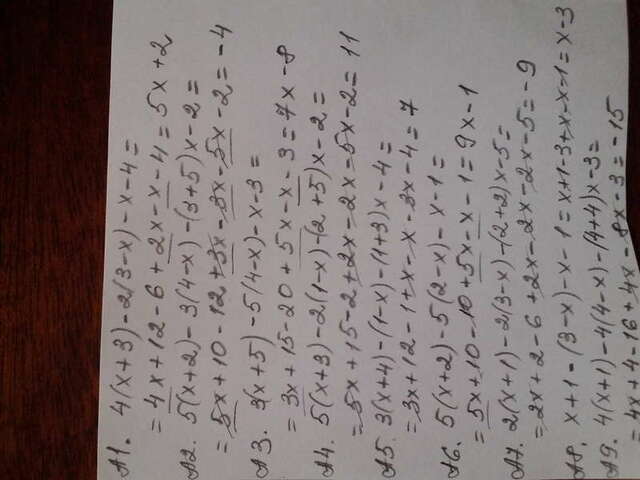 А1. 4(x+3)-2(3-x)-x-4=
=4x+12-6+2x-x-4=5x+2
А2. 5(x+2)-3(4-x)-(3+5)x-2=
=5x+10-12+3x-3x-5x-2=-4
А3. 3(x+5)-5(4-x)-x-3=
=3x+15-20+5x-x-3=7x-8
А4. 5(x+3)-2(1-x)-(2+5)x-2=
=5x+15-2+2x-2x-5x-2=11
А5. 3(x+4)-(1-x)-(1+3)x-4=
=3x+12-1+x-x-3x-4=7
А6. 5(x+2)-5(2-x)-x-1=
=5x+10-10+5x-x-1=9x-1
А7. 2(x+1)-2(3-x)-(2+2)x-5=
=2x+2-6+2x-2x-2x-5=-9
А8. x+1-(3-x)-x-1=x+1-3+x-x-1=x-3
А9. 4(x+1)-4(4-x)-(4+4)x-3=
=4x+4-16+4x-8x-3=-15